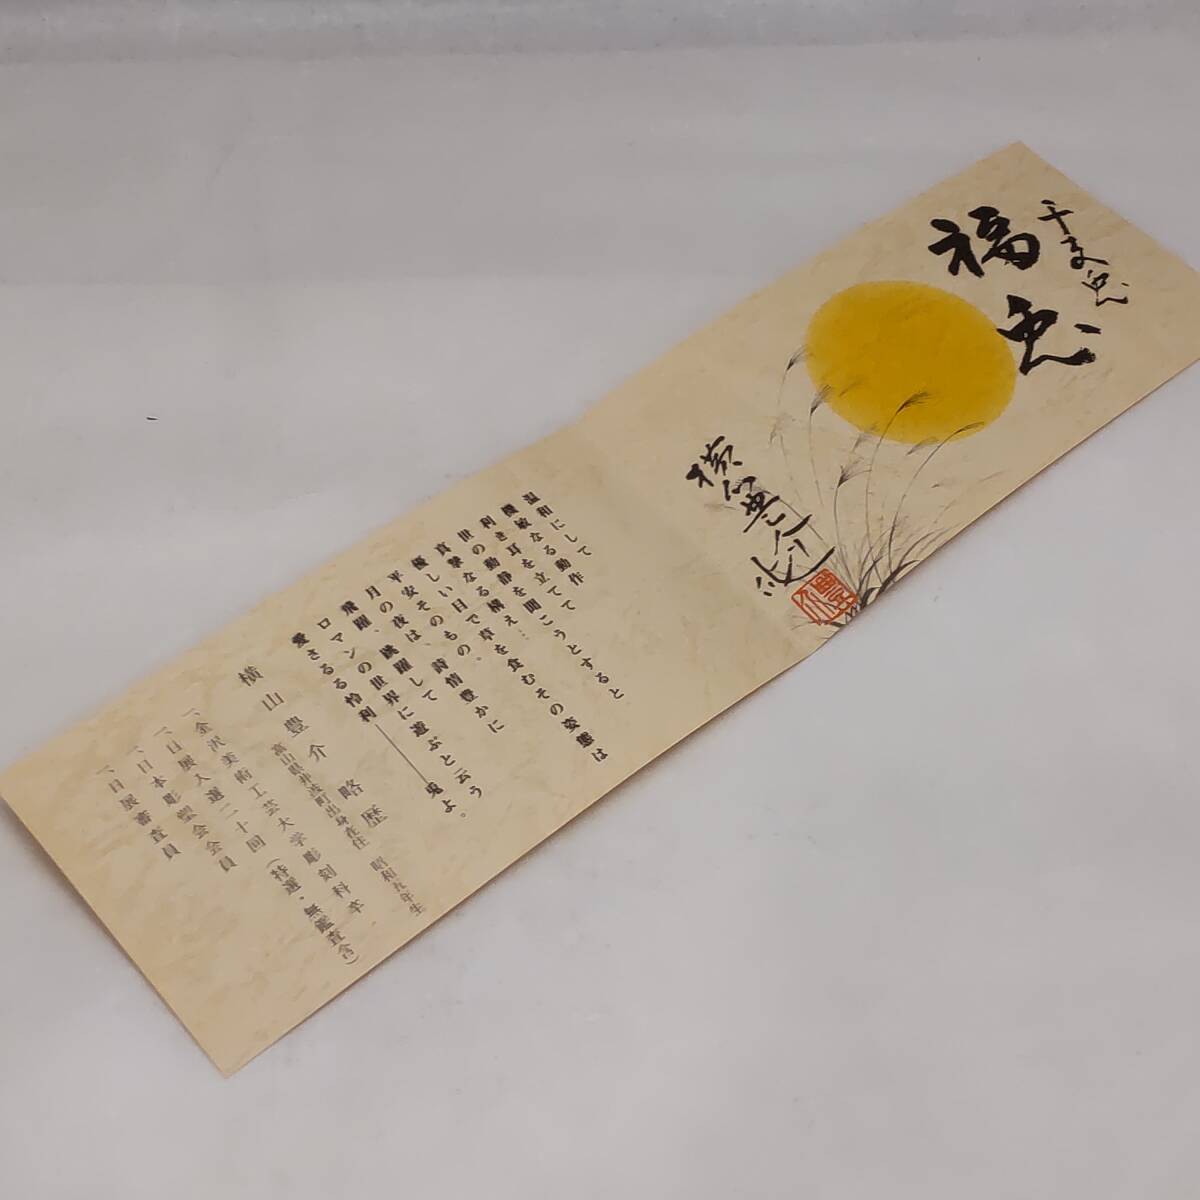 干支兎
福兎
横山豊介作
温和にして
機敏なる動作
利き耳を立てて
世の動静を聞こうとすると
真摯なる構え…
優しい目で、草を食むその姿態は
平安そのもの、詩情豊かに
月の夜は、跳躍して
飛躍、
ロマンの世界に遊ぶと云う
愛さるる怜悧――兎よ。
横山豊介略歴
富山県井波町出身在住 昭和五年生
一、金沢美術工芸大学彫刻科卒
一、日展入選二十回(特選・無鑑査含)
一、日本彫塑会会員
一、日展審査員